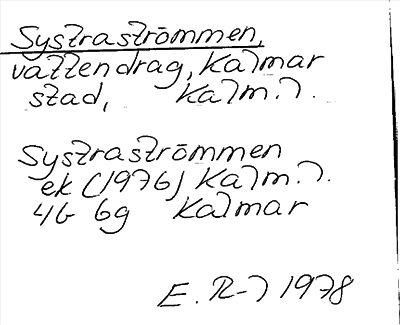 Systraströmmen,
vattendrag, Kalmar
stad, Kalm.l.
Systraströmmen
ek (1976) Kalm.l.
4G 6g Kalmar
E. R-l 1978